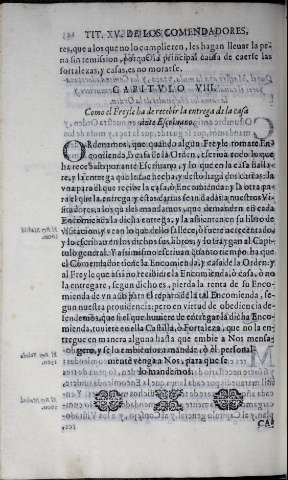 TIT. XV. DE LOS COMENDADORES,
res, que a los que no lo cumplieren, les hagan lleuar la pe-
na sin remission, porque la principal causa de caerse las
fortalezas, y casas, es no morarse.
CAPITVLO VIII.
Como el Freyle ha de recebir la entrega de la casa
ante Escriuano.
ORdenamos, que, quando algun Freyle tomare En-
comienda, ò casa de la Orden, escriua todo lo que
ha rescebido por ante Escriuano, y lo que en la casa falla-
re, y la entrega que le fue fecha, y desto haga dos cartas: la
vna para èl que recibe la casa, ò Encomienda: y la otra pa-
ra el que la entrega, y estas dar se an dadas à nuestros Visi-
tadores, a los quales mandamos, que demanden en cada
Encomienda la dicha entrega, y la assienten en su libro de
visitacion, y vean lo que dello fallece, ò fuere acrecentado,
y lo escriban en los dichos sus libros, y lo traygan al Capi-
tulo general. Y assi mismo escriuan quanto tiempo ha que
el Comendador tiene la Encomienda, y casa de la Orden: y
al Freyle que assi no recibidò la Encomienda, ò casa, ò no
la entregare, segun dicho es, pierda la renta de su Enco-
mienda de vn año para el reparo de la tal Encomienda, se-
gun nuestra prouidencia; pero en virtud de obediencia de-
fendemos, que si el que huuiere de entregar la dicha Enco-
mienda, tuuiere en ella Castillo, ò Fortaleza, que no la en-
tregue en manera alguna hasta que embie a Nos mensa-
gero, y se lo embiemos a mandar, ò èl personal-
mente venga a Nos, para que se
lo mandemos.
CA-